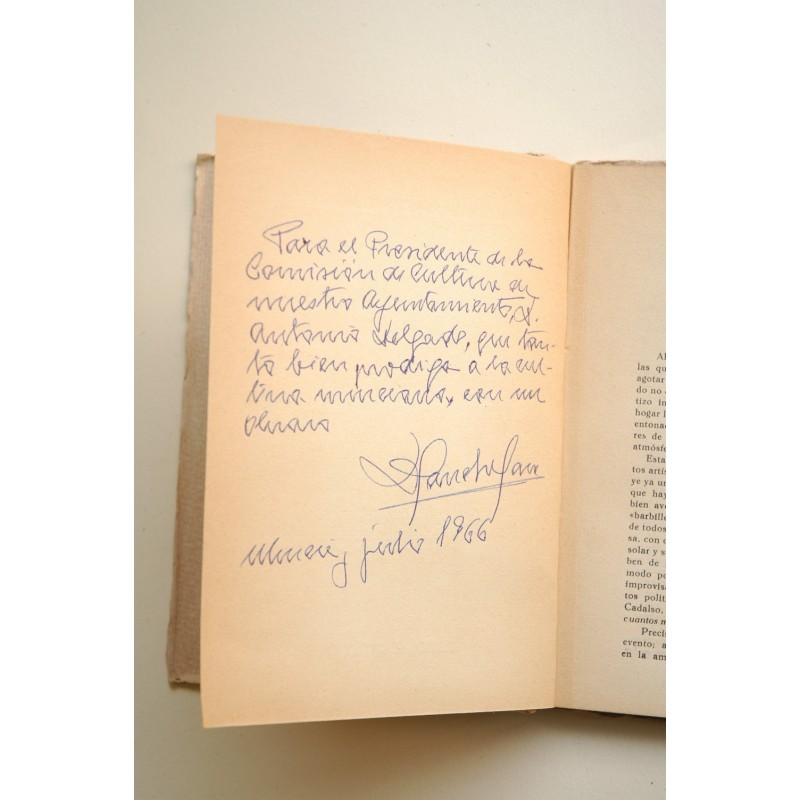 Para el Presidente de la
Comisión de Cultura de
nuestro Ayuntamiento, D.
Antonio Delgado, que tan-
to bien prodiga a la cul-
tura murciana, con un
abrazo
Murcia, julio 1966
Al
las qu
agotar
do no
tizo in
hogar l
entona
res de
atmósfe
Esta
tos artís
ye ya un
que hay
bien ave
«barbille
de todos
sa, con e
solar y s
ben de
modo po
improvisa
tos polít
Cadalso,
cuantos m
Precis
evento; a
en la am